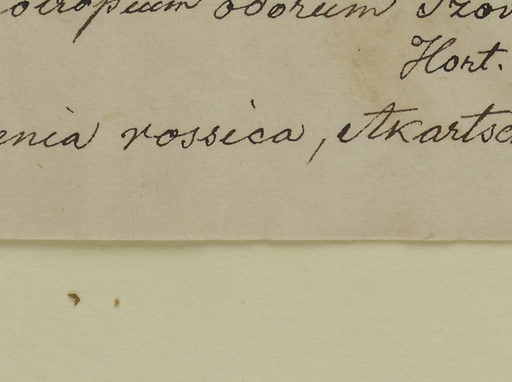 otropium odorum Szov
Hort.
enia rossica, Akartsch